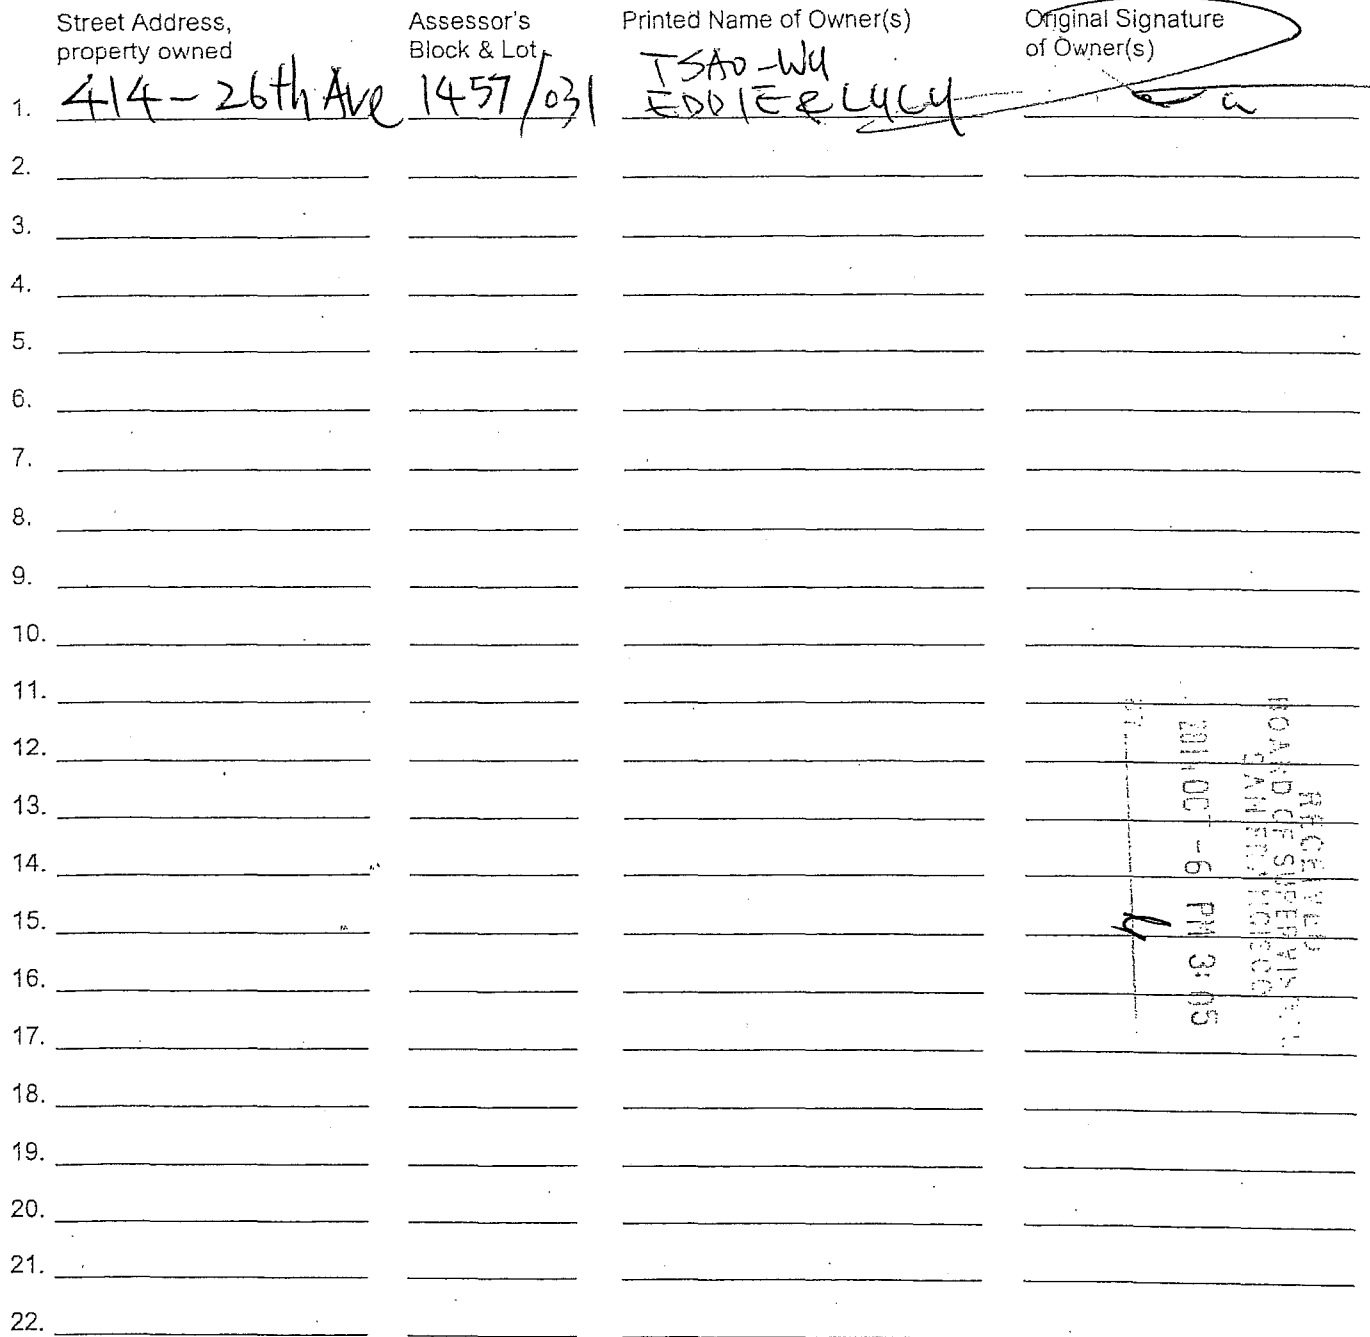 Street Address,
property owned
Assessor's
Block & Lot
Printed Name of Owner(s)
Original Signature
of Owner(s)
1. 414 - 26th Ave 1457/031 TSAO-WU
EDDIE & LYLY
2.
3.
4.
5.
6.
7.
8.
9.
10.
11.
12.
13.
14.
15.
16.
17.
18.
19.
20.
21.
22.
RECEIVED
BOARD OF SUPERVISORS
SAN FRANCISCO
2014 OCT -6 PM 3:05